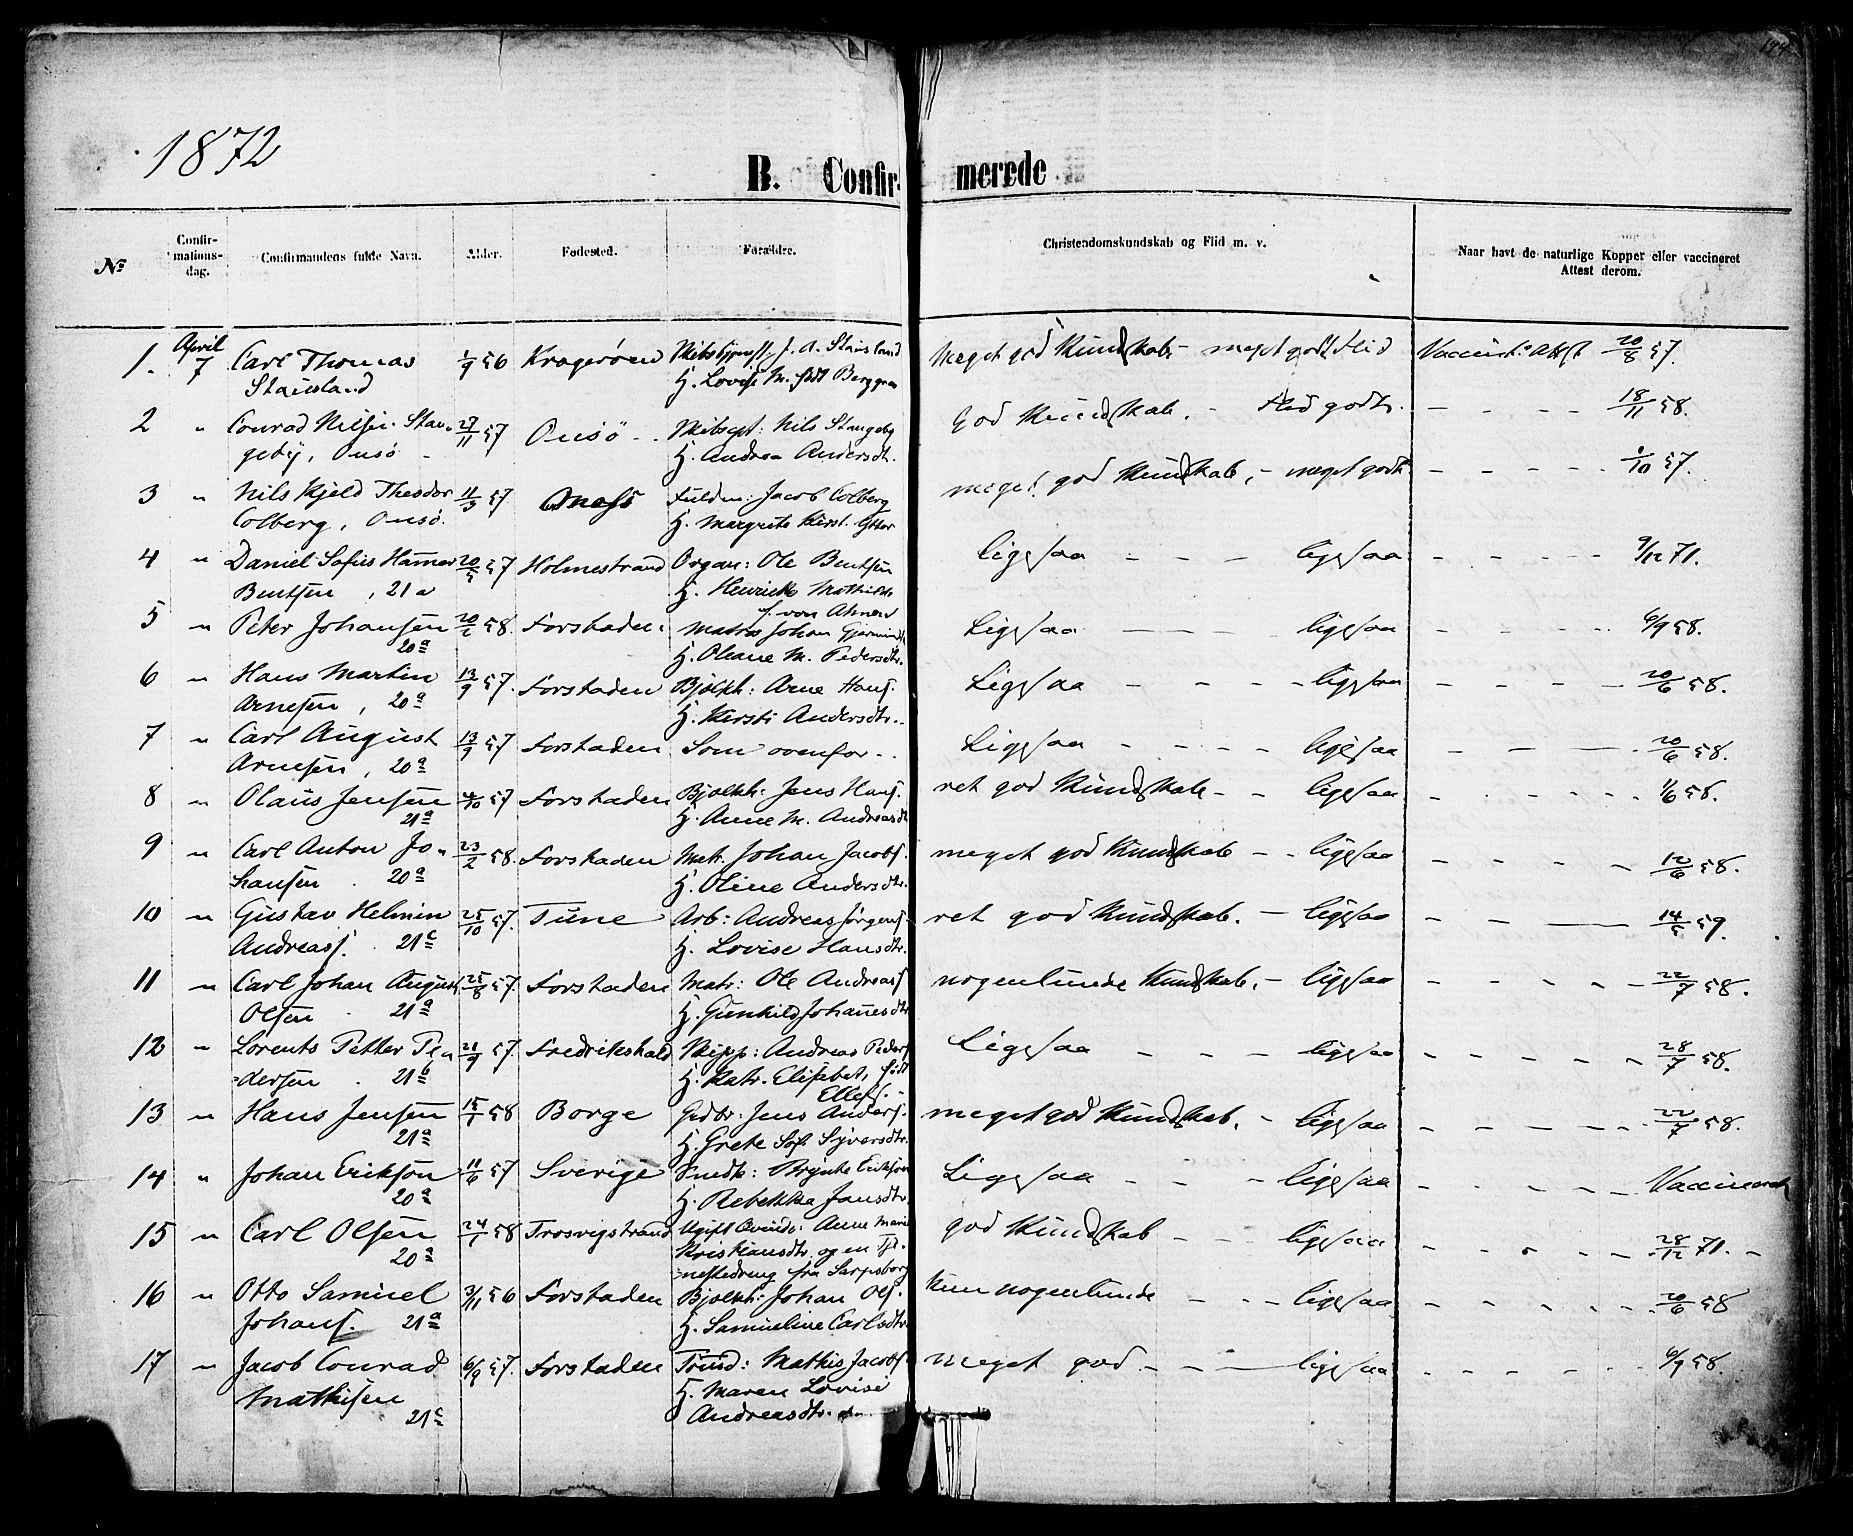 194
1872
B. Confirmerede
№ Confirmationsdag. Confirmandens fulde Navn. Alder. Fødested. Forældre. Christendomskundskab og Flid m. v. Naar havt de naturlige Kopper eller vaccineret Attest derom.
1. April 7 Carl Thomas 1/9 56 Kragerøen J. A. Stausland Meget god Kundskab - meget godt Flid Vaccint: Attst 20/8 57.
Stausland H. Lovise M. født Berggren
2 " Conrad Nilsen Stan- 27/11 57 Onsö - Skibscpt: Nils Stangeby God Kundskab. - Flid godt. - - - - 18/11 58.
geby, Onsö H. Andrea Andersdt.
3 " Nils Kjeld Theodor 11/3 57 Onsö Fuldm: Jacob Colberg meget god Kundskab, - meget godt - - - - /10 57.
Colberg, Onsö. H. Margrete Kirst. Ytter
4 " Daniel Sofus Hamer 20/5 57 Holmestrand Organ: Ole Bentsen Ligesaa - - - ligesaa - - - - 9/12 71.
Bentsen, 21 a H. Henrikke Mathilde
f. von Ahnen
5 " Peter Johansen 20/2 58. Forstaden. Matros Johan Gjermunds. Ligesaa - - - ligesaa - - - - 6/9 58.
20a H. Oleane M. Pedersdtr.
6 " Hans Martin 13/9 57. Forstaden Bjelkh: Arne Hans. Ligesaa - - - - ligesaa - - - - 20/6 58.
Arnesen, 20a H. Kersti Andersdtr.
7 " Carl August 13/9 57 Forstaden Som ovenfor - Ligesaa - - - - ligesaa - - - 20/6 58.
Arnesen, 20a
8 " Olaus Jensen 4/10 57 Forstaden Bjelkh: Jens Hans. ret god Kundskab - - ligesaa - - - - - 1/6 58.
21a H. Anne M. Andreasdt
9 " Carl Anton Jo- 23/2 58. Forstaden Matr. Johan Jacobs. meget god Kundskab - - ligesaa - - - - 12/6 58.
hansen 20a H. Oline Andersdtr.
10 " Gustav Helmin 25/10 57. Tune Arb: Andreas Jörgens. ret god Kundskab. - ligesaa - - - 14/5 59.
Andreass. 21c H. Lovise Hansdtr.
11 " Carl Johan August 25/8 57. Forstaden Matr: Ole Andreass nogenlunde Kundskab. - ligesaa - - - - - 22/7 58.
Olsen 21a H. Gunhild Johannesdtr
12 " Lorents Petter Pe- 21/9 57. Fredrikshald Skipp: Andreas Peders Ligesaa - - - - ligesaa - - - - - 28/7 58.
dersen 21b H. Katr. Elisabet, født
Ellefs.
13 " Hans Jensen 15/1 58 Borge Gdbr: Jens Anders. meget god Kundskab. - ligesaa - - - - - 22/7 58.
21a H. Grete Sof. Syversdtr.
14 " Johan Erikson 11/6 57 Sverige Smedk: Brynte Erikson Ligesaa - - - ligesaa - - - - - Vaccineret
20a H. Rebekka Jansdtr.
15 " Carl Olsen 24/1 58 Trosvigstrand Ugift Qvinde: Anne Marie god Kundskab - - - ligesaa - - - - - 28/12 71. -
20a Kristiansdtr. og en Tje-
nestedreng fra Sarpsborg
16 " Otto Samuel 3/11 56 Forstaden Bjelkh: Johan Ols. kun nogenlunde - - - ligesaa - - - - - 20/6 58
Johans. 21a H. Samueline Carlsdtr.
17 " Jacob Conrad 6/9 57. Forstaden Tømd: Mathis Jacobs. meget god. - - - ligesaa - - - - - 6/9 58.
Mathisen H. Maren Lovise
21c Andreasdtr.